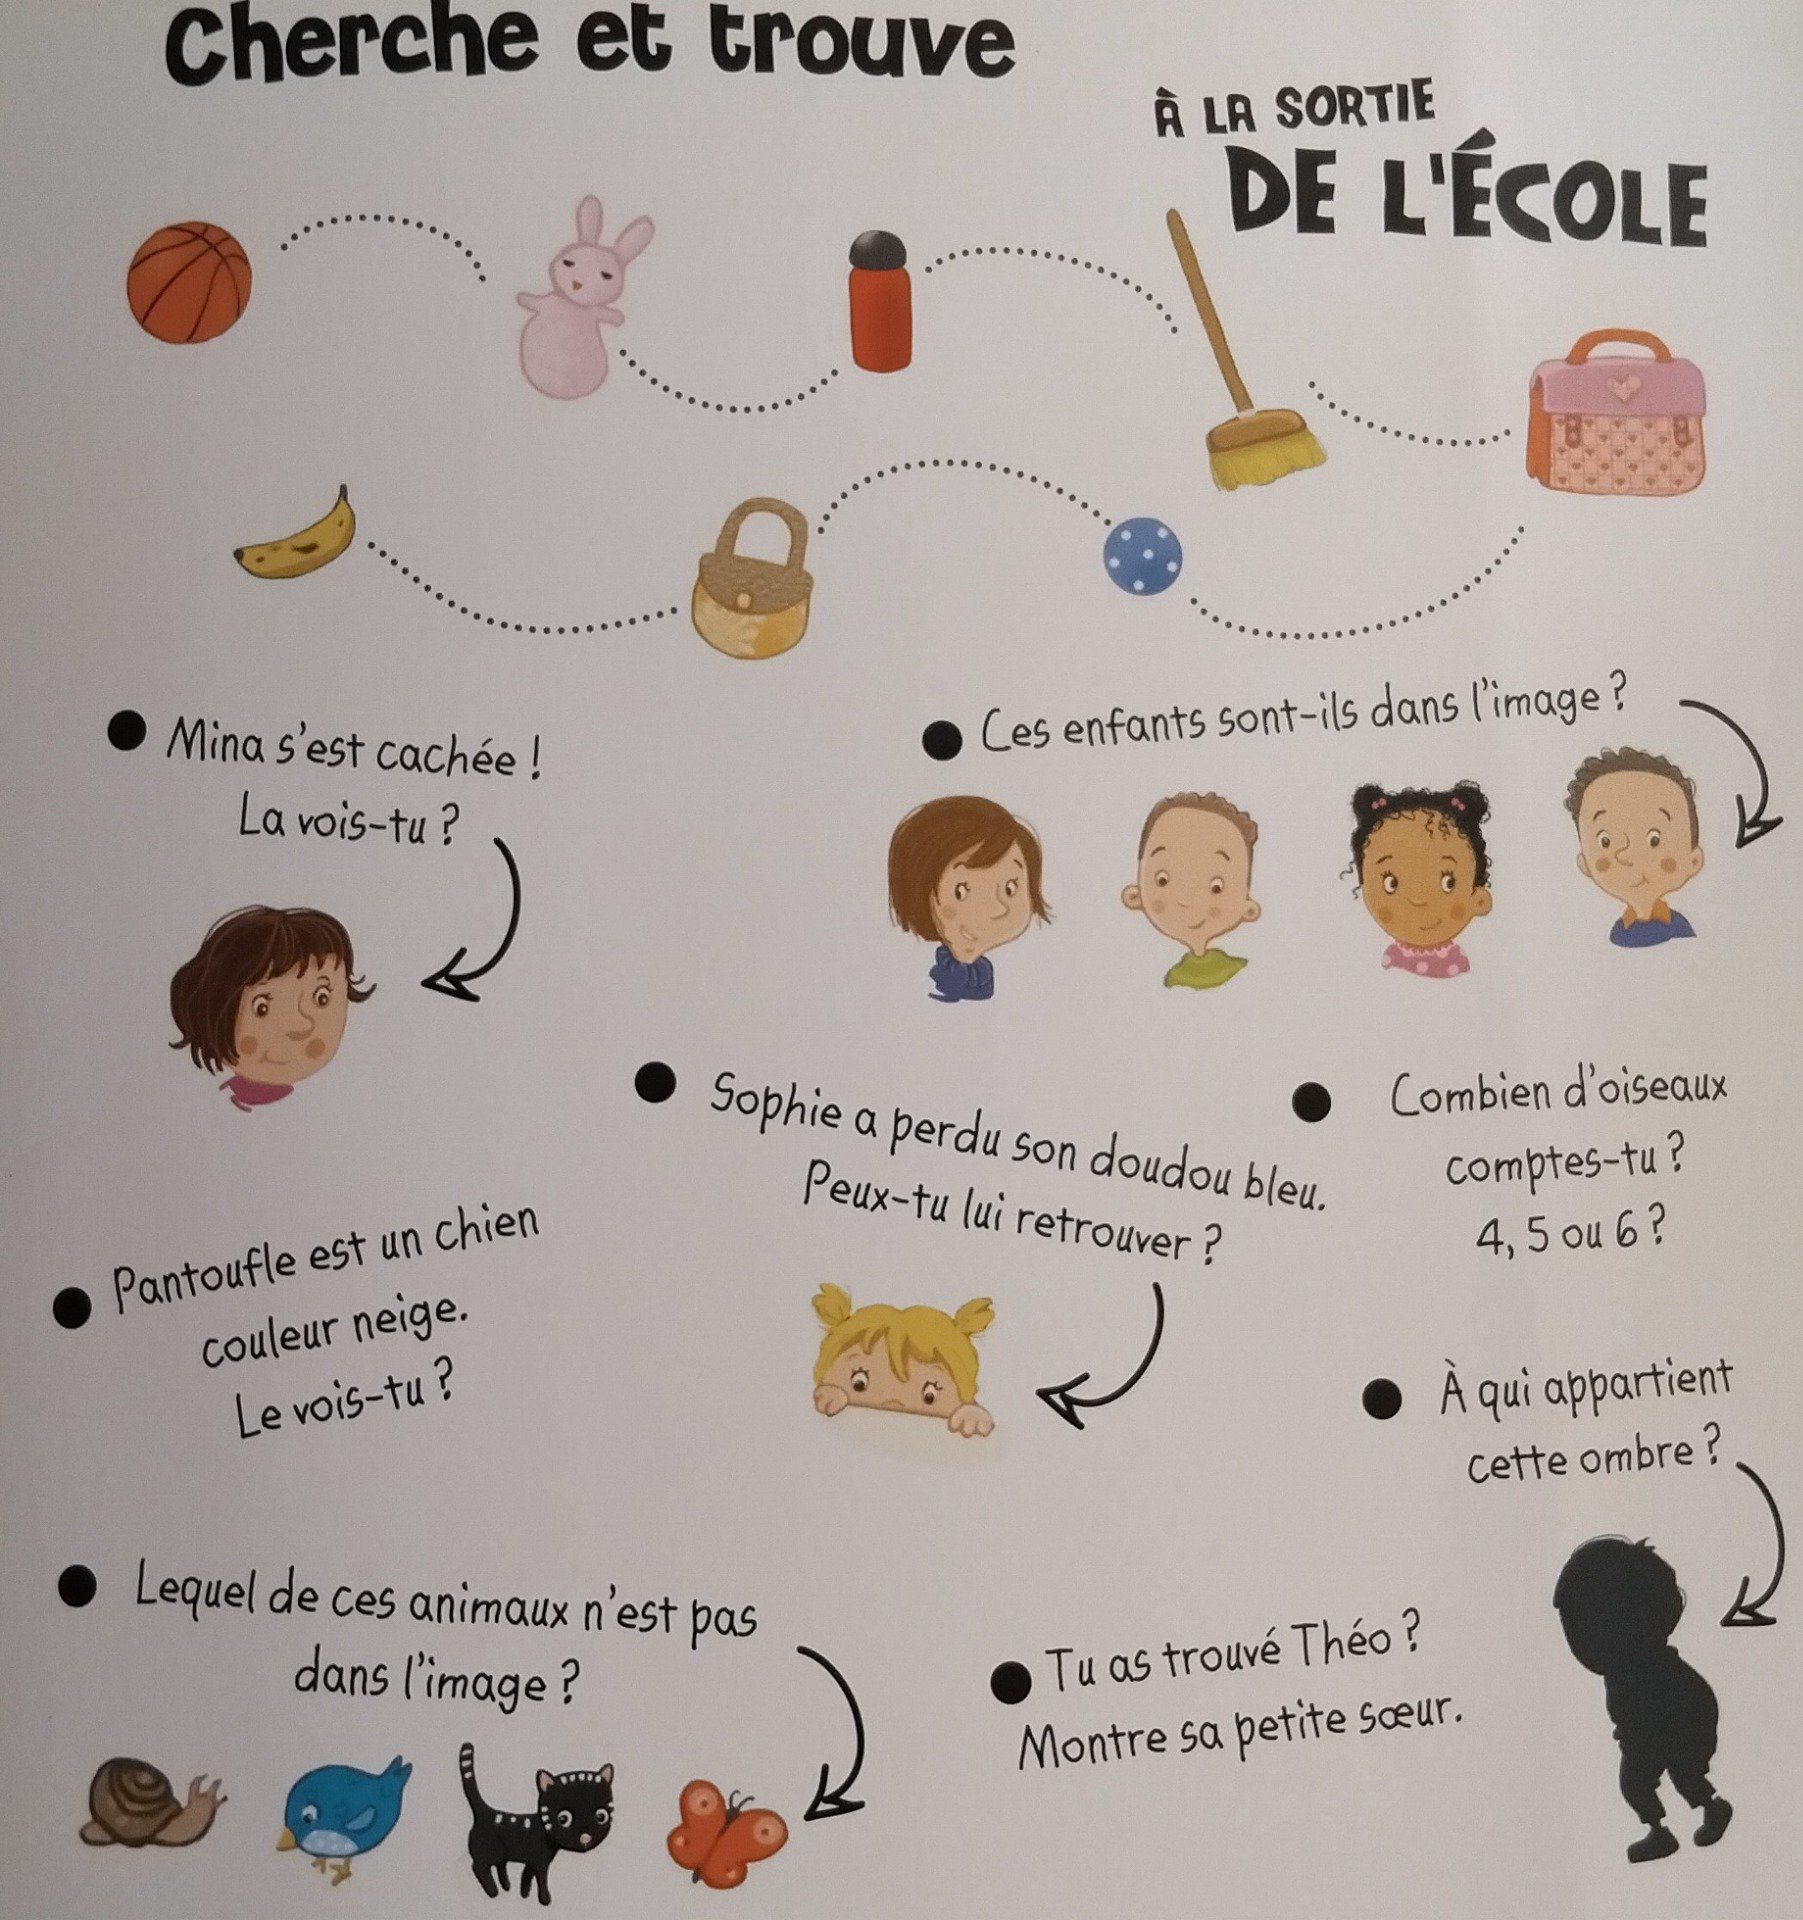 Cherche et trouve
À LA SORTIE
DE L'ÉCOLE
Mina s'est cachée !
La vois-tu ?
Ces enfants sont-ils dans l'image ?
Sophie a perdu son doudou bleu.
Peux-tu lui retrouver ?
Combien d'oiseaux
comptes-tu ?
4, 5 ou 6 ?
Pantoufle est un chien
couleur neige.
Le vois-tu ?
À qui appartient
cette ombre ?
Lequel de ces animaux n'est pas
dans l'image ?
Tu as trouvé Théo ?
Montre sa petite sœur.